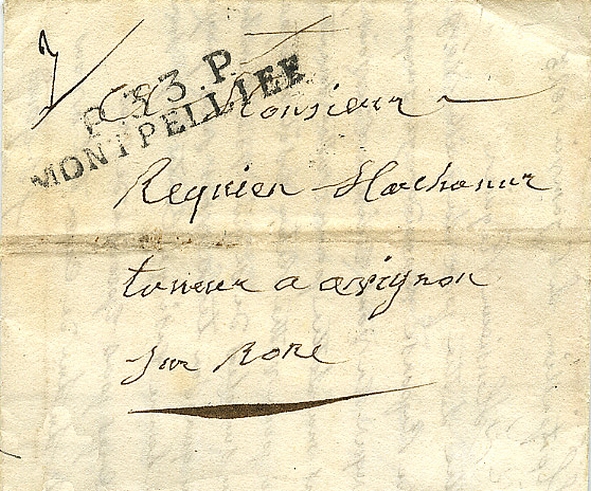 P.33.P.
MONTPELLIER
A Monsieur
Requien Marchanur
taneur a avignon
sur Rone